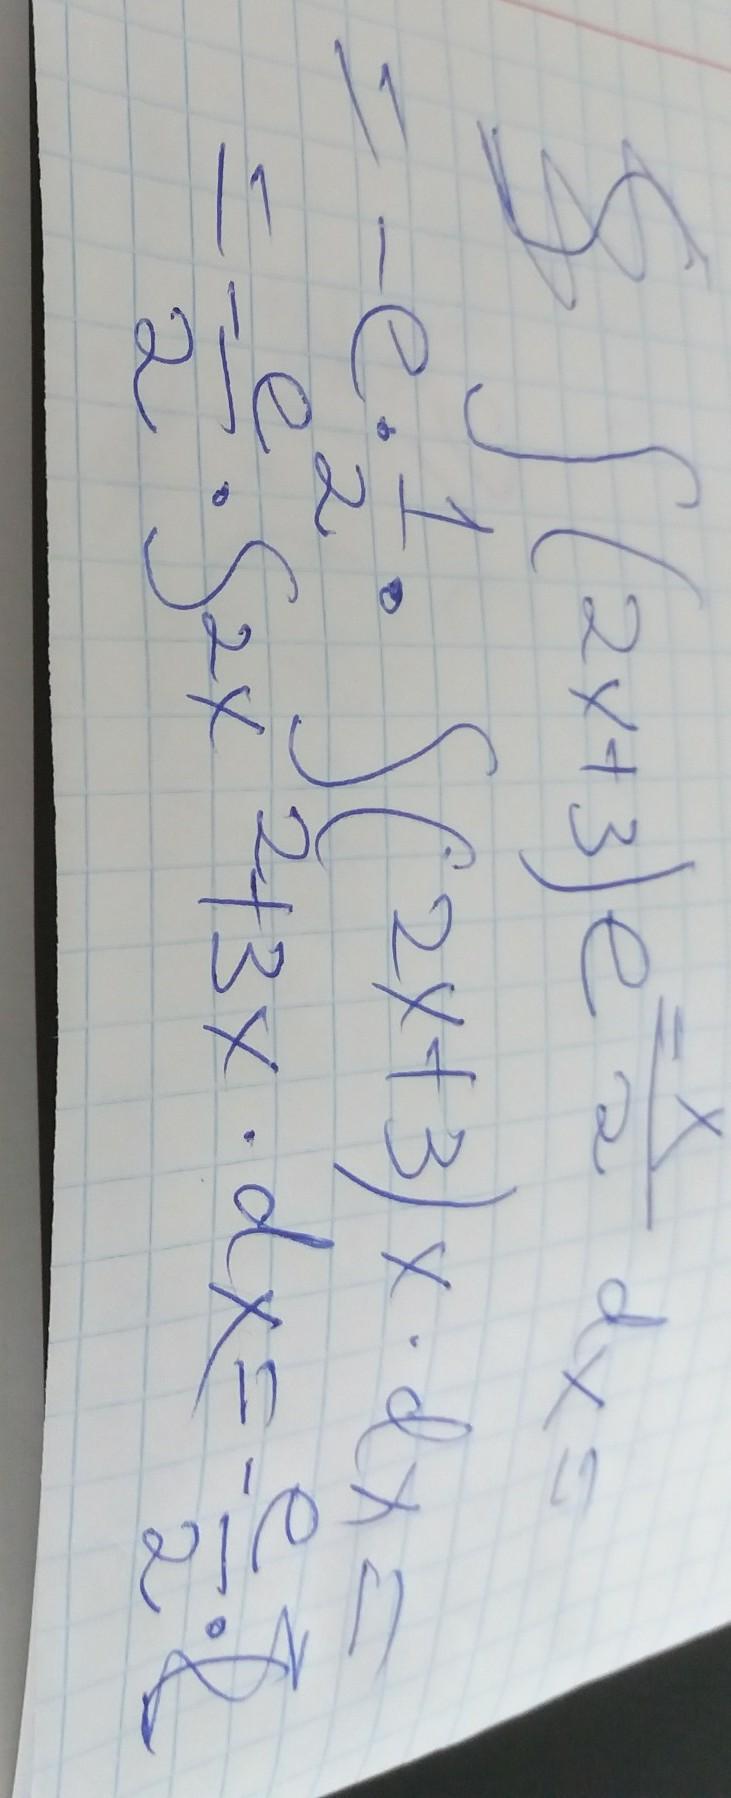 ∫(2x+3)e^{-x/2} dx =
= -e · 1/2 · ∫(2x+3)x · dx =
= -e/2 · ∫2x²+3x · dx = -e/2 ·